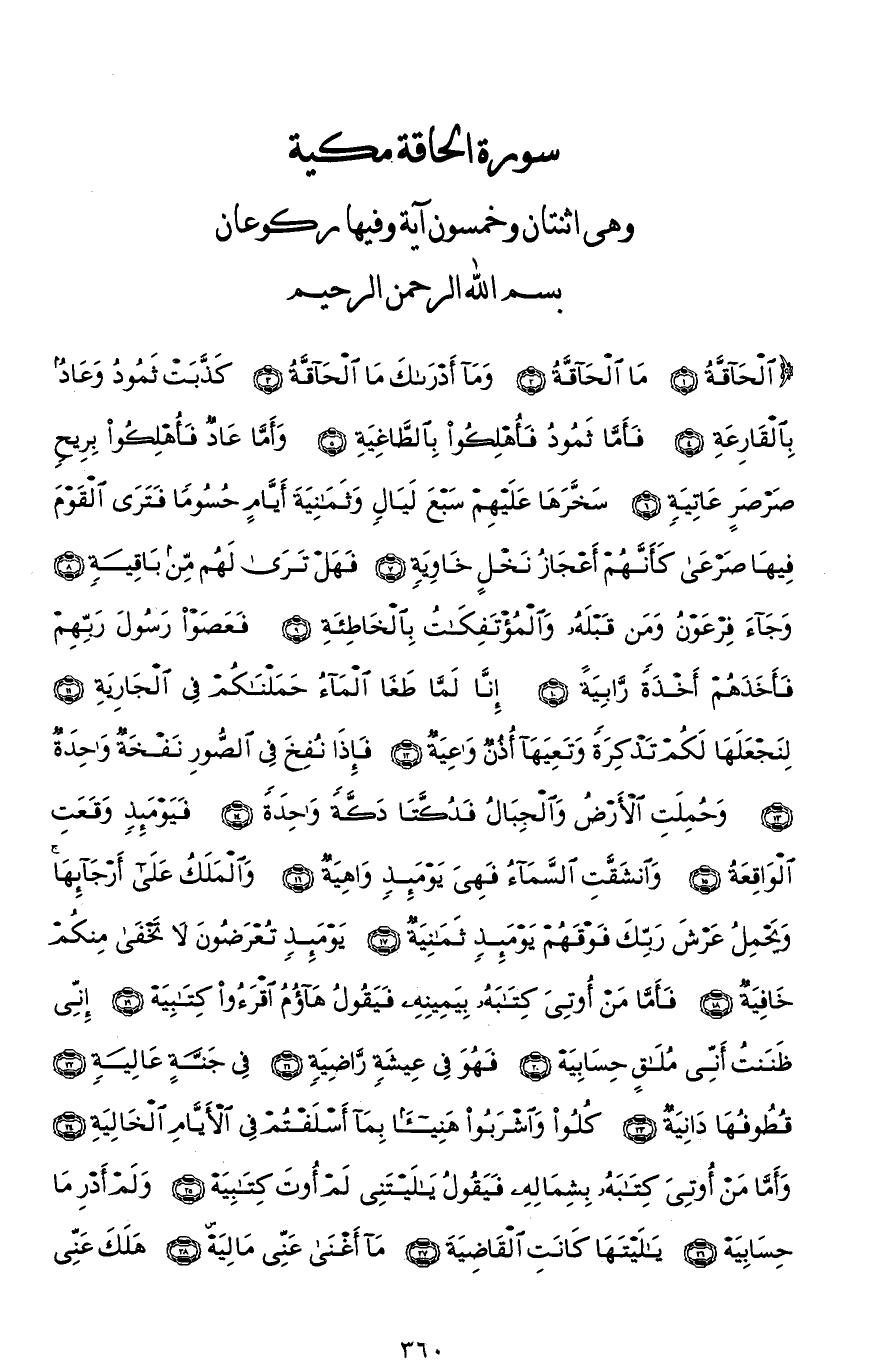 سورة الحاقة مكية
وهى اثنتان وخمسون آية وفيها ركوعان
بسم الله الرحمن الرحيم
﴿ٱلْحَآقَّةُ ۝١ مَا ٱلْحَآقَّةُ ۝٢ وَمَآ أَدْرَىٰكَ مَا ٱلْحَآقَّةُ ۝٣ كَذَّبَتْ ثَمُودُ وَعَادٌۢ
بِٱلْقَارِعَةِ ۝٤ فَأَمَّا ثَمُودُ فَأُهْلِكُوا۟ بِٱلطَّاغِيَةِ ۝٥ وَأَمَّا عَادٌ فَأُهْلِكُوا۟ بِرِيحٍ
صَرْصَرٍ عَاتِيَةٍ ۝٦ سَخَّرَهَا عَلَيْهِمْ سَبْعَ لَيَالٍ وَثَمَـٰنِيَةَ أَيَّامٍ حُسُومًا فَتَرَى ٱلْقَوْمَ
فِيهَا صَرْعَىٰ كَأَنَّهُمْ أَعْجَازُ نَخْلٍ خَاوِيَةٍ ۝٧ فَهَلْ تَرَىٰ لَهُم مِّنۢ بَاقِيَةٍ ۝٨
وَجَآءَ فِرْعَوْنُ وَمَن قَبْلَهُۥ وَٱلْمُؤْتَفِكَـٰتُ بِٱلْخَاطِئَةِ ۝٩ فَعَصَوْا۟ رَسُولَ رَبِّهِمْ
فَأَخَذَهُمْ أَخْذَةً رَّابِيَةً ۝١٠ إِنَّا لَمَّا طَغَا ٱلْمَآءُ حَمَلْنَـٰكُمْ فِى ٱلْجَارِيَةِ ۝١١
لِنَجْعَلَهَا لَكُمْ تَذْكِرَةً وَتَعِيَهَآ أُذُنٌ وَٰعِيَةٌ ۝١٢ فَإِذَا نُفِخَ فِى ٱلصُّورِ نَفْخَةٌ وَٰحِدَةٌ
۝١٣ وَحُمِلَتِ ٱلْأَرْضُ وَٱلْجِبَالُ فَدُكَّتَا دَكَّةً وَٰحِدَةً ۝١٤ فَيَوْمَئِذٍ وَقَعَتِ
ٱلْوَاقِعَةُ ۝١٥ وَٱنشَقَّتِ ٱلسَّمَآءُ فَهِىَ يَوْمَئِذٍ وَاهِيَةٌ ۝١٦ وَٱلْمَلَكُ عَلَىٰٓ أَرْجَآئِهَا ۚ
وَيَحْمِلُ عَرْشَ رَبِّكَ فَوْقَهُمْ يَوْمَئِذٍ ثَمَـٰنِيَةٌ ۝١٧ يَوْمَئِذٍ تُعْرَضُونَ لَا تَخْفَىٰ مِنكُمْ
خَافِيَةٌ ۝١٨ فَأَمَّا مَنْ أُوتِىَ كِتَـٰبَهُۥ بِيَمِينِهِۦ فَيَقُولُ هَآؤُمُ ٱقْرَءُوا۟ كِتَـٰبِيَهْ ۝١٩ إِنِّى
ظَنَنتُ أَنِّى مُلَـٰقٍ حِسَابِيَهْ ۝٢٠ فَهُوَ فِى عِيشَةٍ رَّاضِيَةٍ ۝٢١ فِى جَنَّةٍ عَالِيَةٍ ۝٢٢
قُطُوفُهَا دَانِيَةٌ ۝٢٣ كُلُوا۟ وَٱشْرَبُوا۟ هَنِيٓـًٔۢا بِمَآ أَسْلَفْتُمْ فِى ٱلْأَيَّامِ ٱلْخَالِيَةِ ۝٢٤
وَأَمَّا مَنْ أُوتِىَ كِتَـٰبَهُۥ بِشِمَالِهِۦ فَيَقُولُ يَـٰلَيْتَنِى لَمْ أُوتَ كِتَـٰبِيَهْ ۝٢٥ وَلَمْ أَدْرِ مَا
حِسَابِيَهْ ۝٢٦ يَـٰلَيْتَهَا كَانَتِ ٱلْقَاضِيَةَ ۝٢٧ مَآ أَغْنَىٰ عَنِّى مَالِيَهْ ۜ ۝٢٨ هَلَكَ عَنِّى
٣٦٠